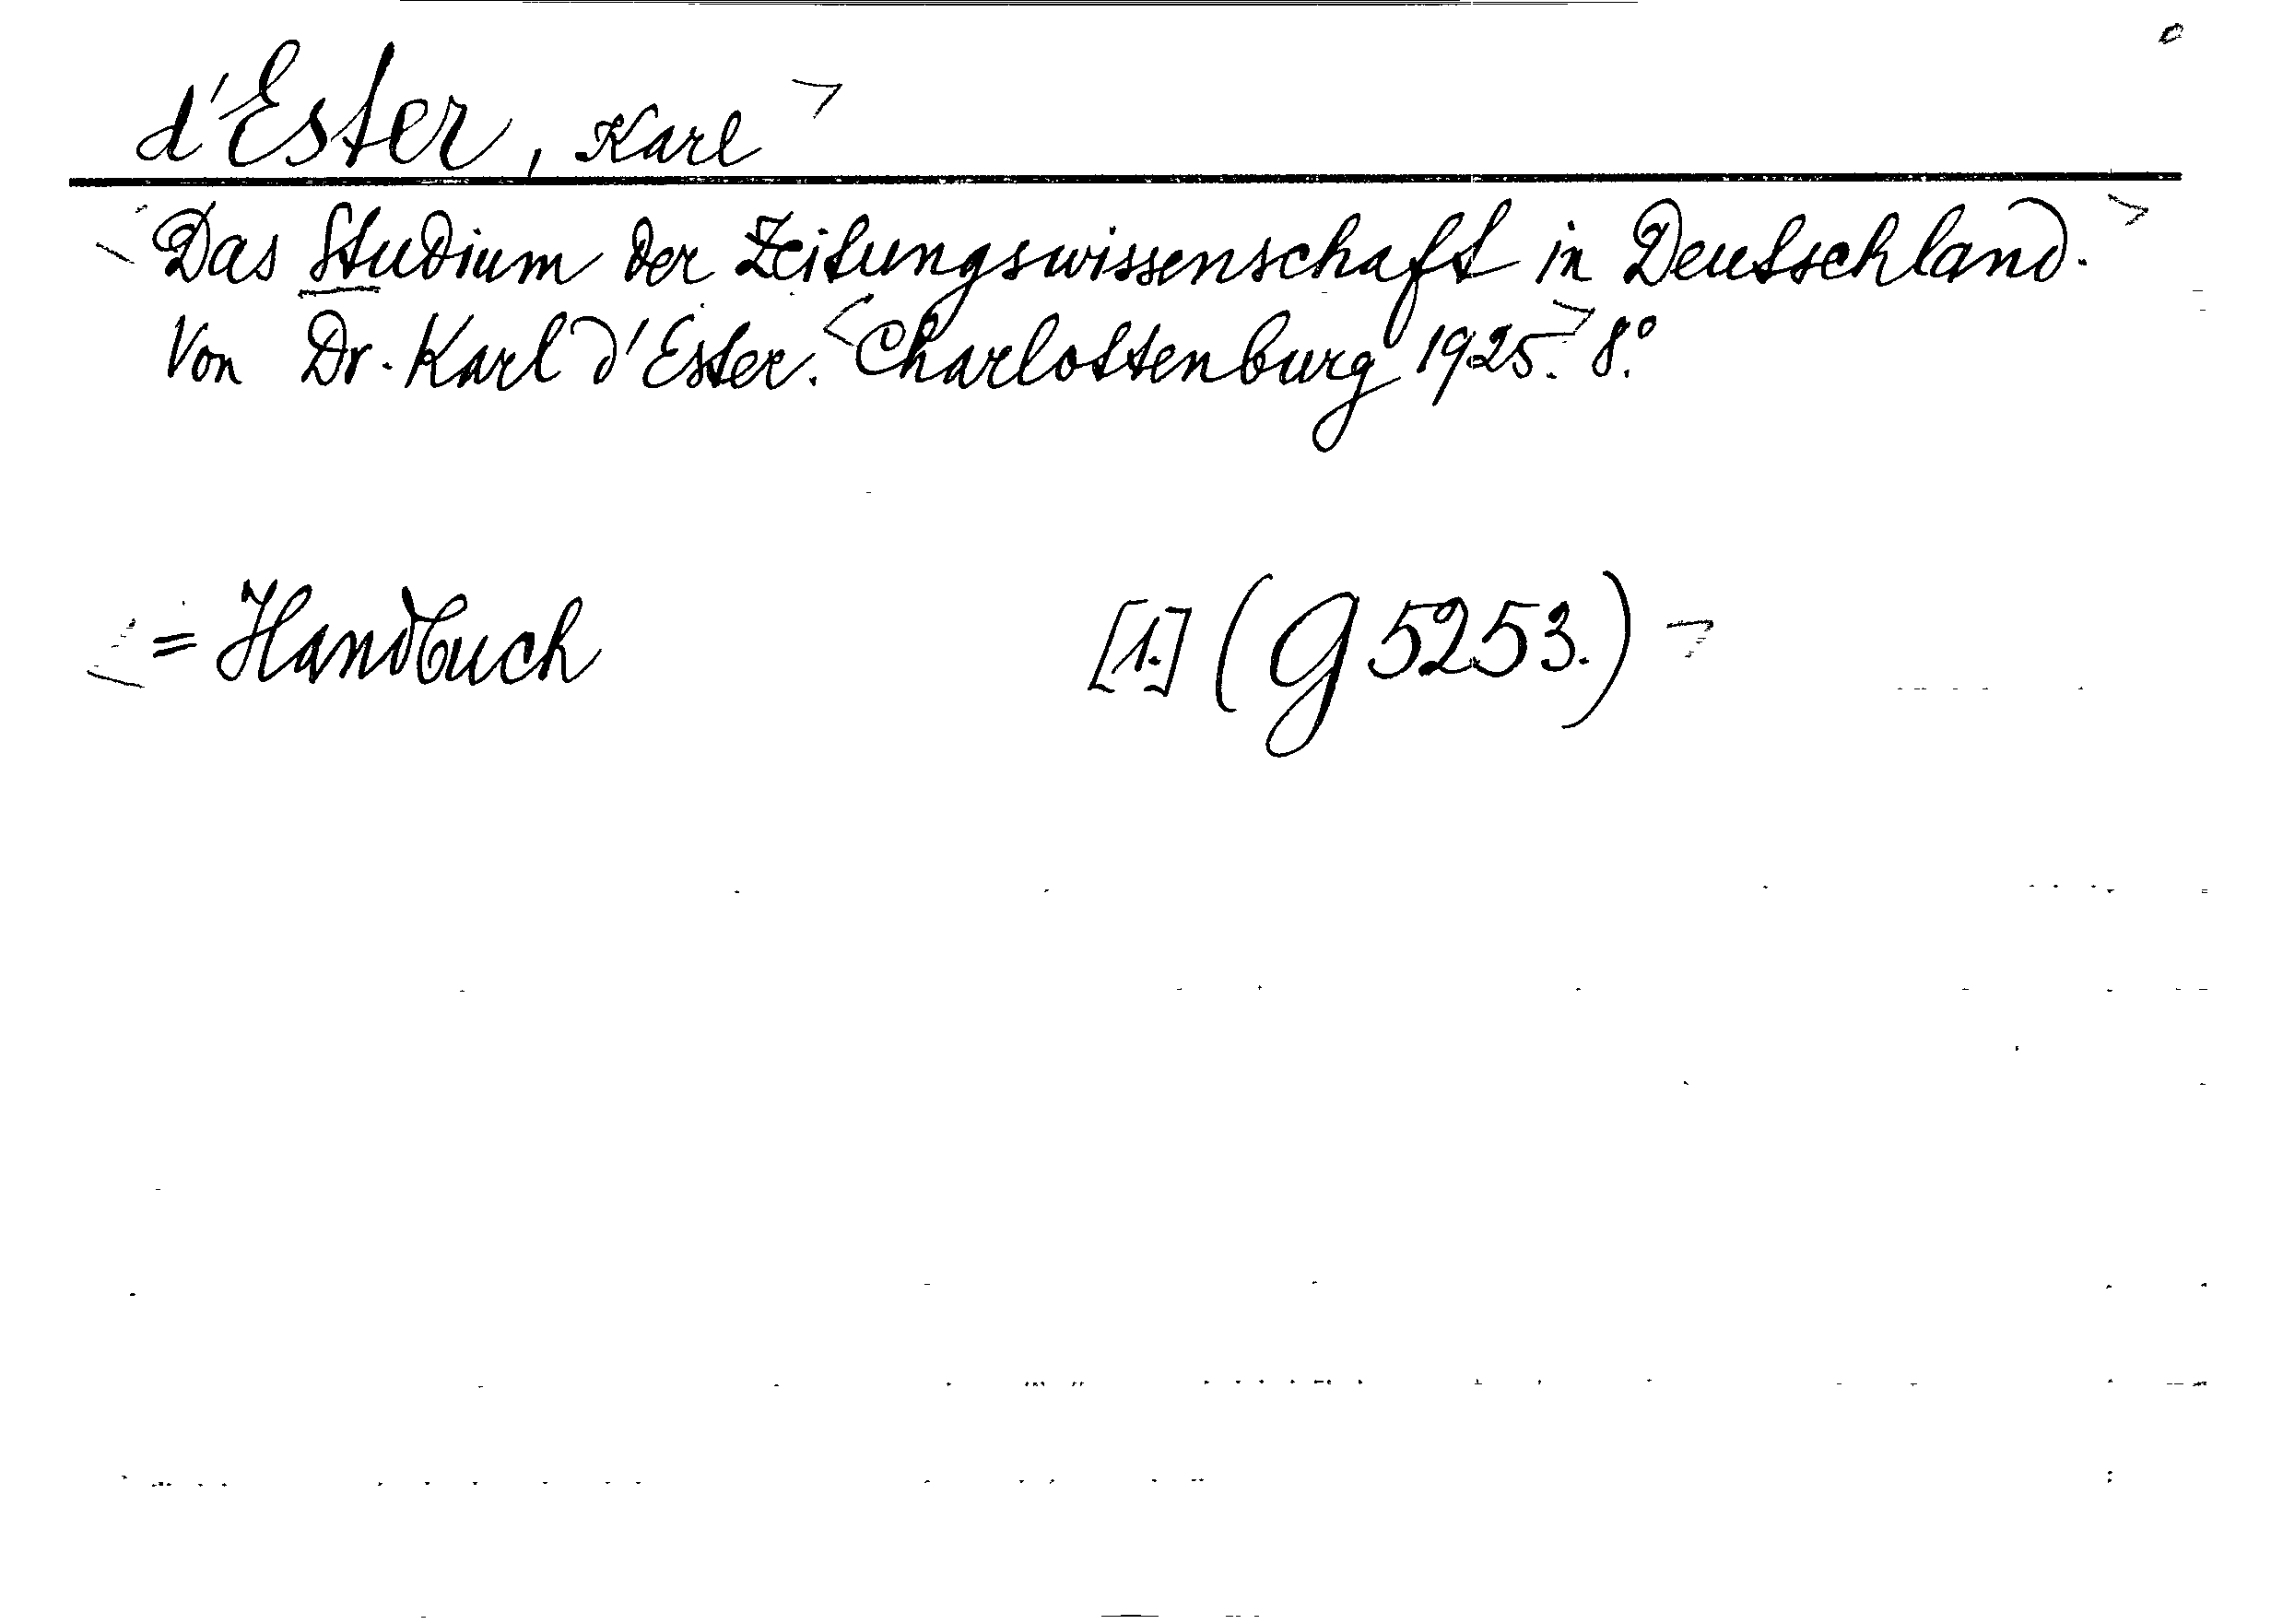 d'Ester, Karl
Das Studium der Zeitungswissenschaft in Deutschland.
Von Dr. Karl d'Ester. Charlottenburg 1925. 8°.
= Handbuch [1.] (G 5253.)